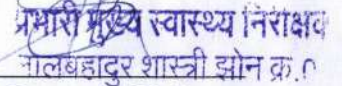 प्रभारी मुख्य स्वास्थ्य निरीक्षक
लालबहादुर शास्त्री झोन क्र.